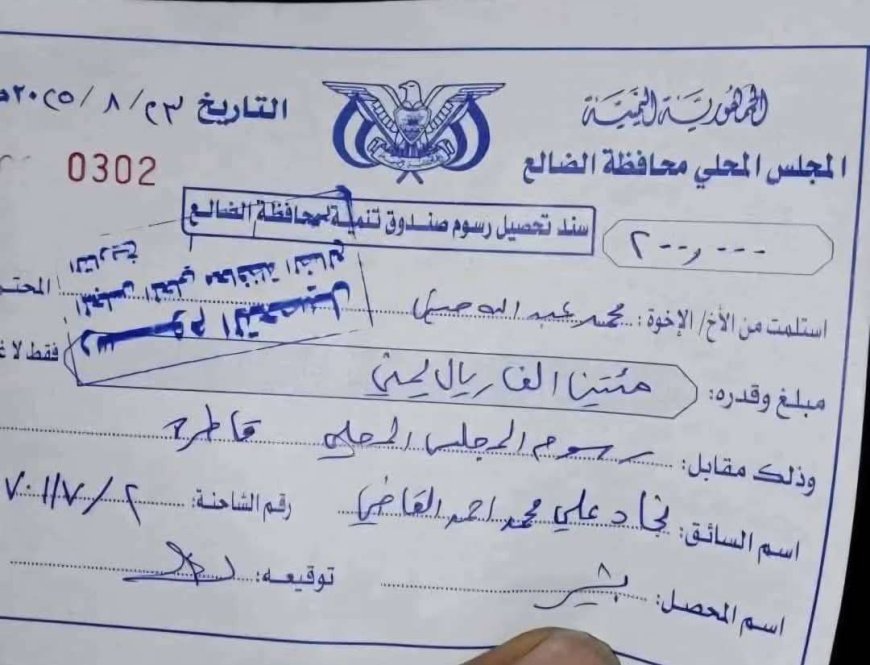 الجمهورية اليمنية
المجلس المحلي محافظة الضالع
التاريخ ٢٣ / ٨ / ٢٠٢٥م
0302
سند تحصيل رسوم صندوق تنمية بمحافظة الضالع
٢٠٠,٠٠٠
استلمت من الأخ/ الإخوة: محمد عبدالله حسين المحتر
مبلغ وقدره: مئتينا الف ريال يمني فقط لا غ
وذلك مقابل: رسوم المجلس المحلي قاطرة
اسم السائق: نجاد علي محمد احمد القاضي رقم الشاحنة: ٢ / ٧٠١١٧
اسم المحصل: بشير توقيعه:
المجلس المحلي محافظة الضالع
التاريخ
رسوم التحصيل